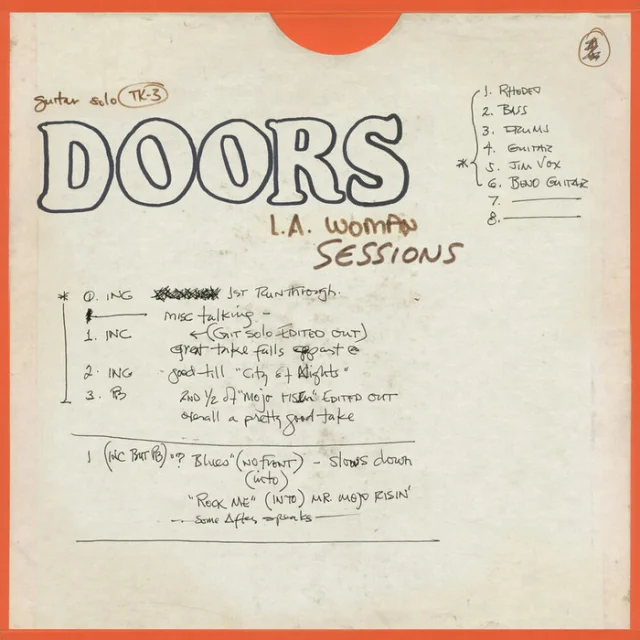 guitar solo TK-3
DOORS
L.A. WOMAN
SESSIONS
1. RHODES
2. BASS
3. DRUMS
4. GUITAR
* 5. JIM VOX
6. BEND GUITAR
7.
8.
* 0. INC 1ST RUNThrough.
misc talking -
1. INC ←(GIT SOLO EDITED OUT)
great take falls apart @
2. INC good till "City of Nights"
3. PB 2ND 1/2 of "Mojo RISIN" EDITED OUT
overall a pretty good take
1 (INC BUT PB) "? Blues" (NO FRONT) - slows down
(into)
"ROCK ME" (INTO) MR. MOJO RISIN'
some After speaks